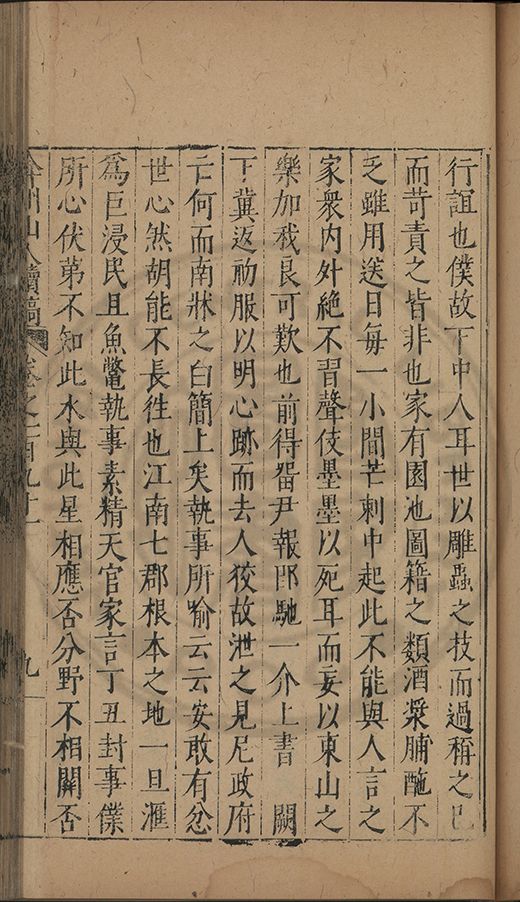 行誼也僕故下中人耳世以雕蟲之技而過稱之已
而苛責之皆非也家有園池圖籍之類酒漿脯醢不
乏雖用送日每一小間芒刺中起此不能與人言之
家衆内外絶不習聲伎墨墨以死耳而妄以東山之
樂加我良可歎也前得畱尹報卽馳一介上書 闕
下冀返初服以明心跡而去人狡故泄之見尼政府
亡何而南牀之白簡上矣執事所喻云云安敢有忿
世心然胡能不長徃也江南七郡根本之地一旦滙
爲巨浸民且魚鼈執事素精天官家言丁丑封事僕
所心伏第不知此水與此星相應否分野不相關否
弇州山人續稿 卷之一百九十一 九